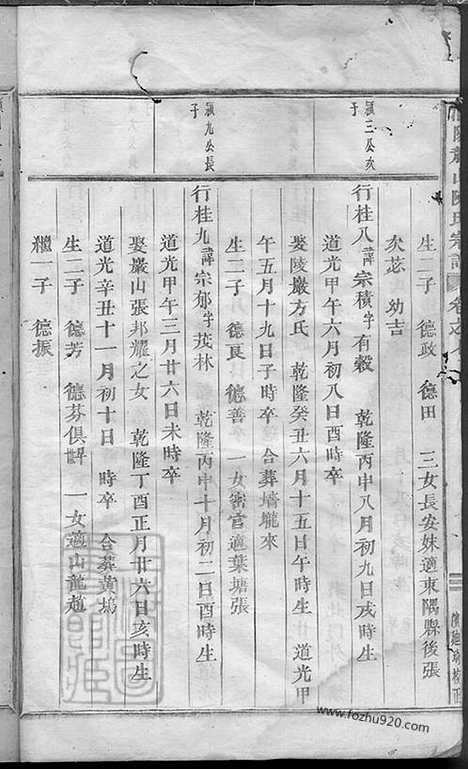 陳氏宗譜
生二子 德政 德田 三女長安妹適東隅縣後張
次苾 幼吉
顯三公次子
行桂八諱宗積字有穀 乾隆丙申八月初九日戌時生
道光甲午六月初八日酉時卒
娶陵巖方氏 乾隆癸丑六月十五日午時生 道光甲
午五月十九日子時卒 合葬墻壠來
生二子 德艮 德善 一女密官適葉塘張
顯九公長子
行桂九諱宗郁字茂林 乾隆丙申十月初二日酉時生
道光甲午三月廿六日未時卒
娶巖山張邦耀之女 乾隆丁酉正月廿六日亥時生
道光辛丑十一月初十日 時卒 合葬黃塢
生二子 德芳 德芬俱殤 一女適山龍趙
繼一子 德振
www.fozhu920.com